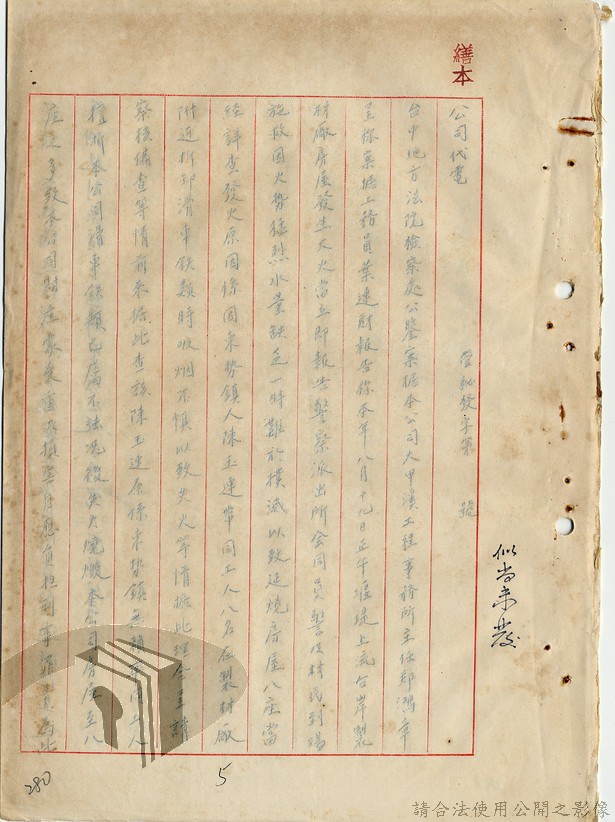 繕本
公司代電 管秘發字第 號
台中地方法院檢察處公鑒案據本公司大甲溪工程事務所主任鄒鴻章
呈稱案據工務員葉連財報告稱本年八月十九日正午堰堤上流右岸製
材廠房屋發生大火當立即報告警察派出所會同員警及村民到場
施救因火勢猛烈水量缺乏一時難於撲滅以致延燒房屋八座當
經詳查發火原因係因東勢鎮人陳玉連率同工人八名在製材廠
附近拆卸滑車鉄類時吸烟不慎以致失火等情據此理合呈請
察核備查等情前來據此查該陳玉連原係東勢鎮無賴 同工人
竊本公司滑車鉄類已屬不法況復失火燒燬本公司房屋至八
座之多致本公司財產蒙受重大損害自應負担刑事罪責為此
似尚未發
5
280
請合法使用公開之影像